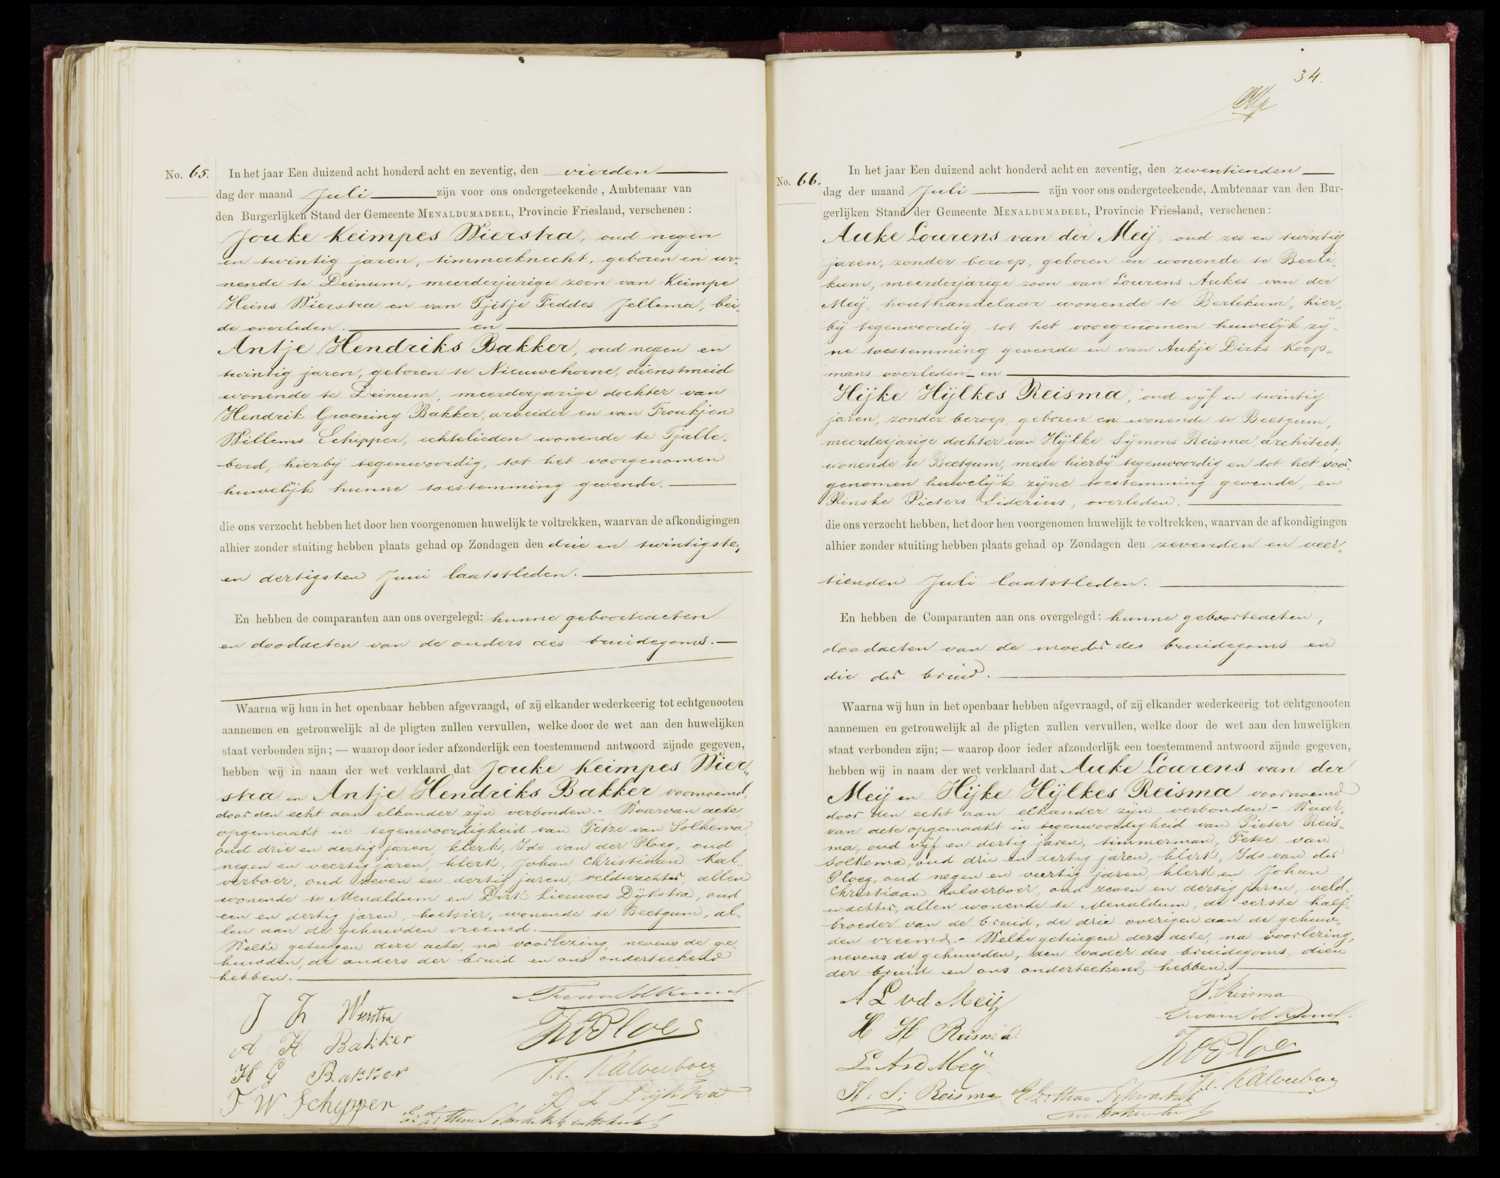 No. 65.
In het jaar Een duizend acht honderd acht en zeventig, den vierden
dag der maand Juli zijn voor ons ondergeteekende, Ambtenaar van
den Burgerlijken Stand der Gemeente MENALDUMADEEL, Provincie Friesland, verschenen:
Jouke Keimpes Wierstra, oud negen
en twintig jaren, timmerknecht, geboren en wo-
nende te Deinum, meerderjarige zoon van Keimpe
Heins Wierstra en van Tjitje Feddes Jellema, bei-
de overleden. en
Antje Hendriks Bakker, oud negen en
twintig jaren, geboren te Nieuwehorne, dienstmeid
wonende te Deinum, meerderjarige dochter van
Hendrik Groening Bakker, arbeider en van Froukjen
Willems Schipper, echtelieden wonende te Tjalle-
berd, hierbij tegenwoordig, tot het voorgenomen
huwelijk hunne toestemming gevende.
die ons verzocht hebben het door hen voorgenomen huwelijk te voltrekken, waarvan de afkondigingen
alhier zonder stuiting hebben plaats gehad op Zondagen den drie en twintigste,
en dertigsten Juni laatstleden.
En hebben de comparanten aan ons overgelegd: hunne geboorteacten
en doodacten van de ouders des bruidegoms.
Waarna wij hun in het openbaar hebben afgevraagd, of zij elkander wederkeerig tot echtgenooten
aannemen en getrouwelijk al de pligten zullen vervullen, welke door de wet aan den huwelijken
staat verbonden zijn; — waarop door ieder afzonderlijk een toestemmend antwoord zijnde gegeven,
hebben wij in naam der wet verklaard dat Jouke Keimpes Wier-
stra en Antje Hendriks Bakker voornoemd,
door den echt aan elkander zijn verbonden.- Waarvan acte
opgemaakt in tegenwoordigheid van Fetze van Solkema,
oud drie en dertig jaren, klerk, Ids van der Ploeg, oud
negen en veertig jaren, klerk, Johan Christiaan Kal-
verboer, oud zeven en dertig jaren, veldwachter, allen
wonende te Menaldum en Dirk Lieuwes Dijkstra, oud
een en dertig jaren, wonende te Beetgum, al-
len aan de gehuwden vreemd.
Welke getuigen deze acte, na voorlezing, nevens de ge-
huwden, de ouders der bruid en ons onderteekend
hebben.
J K Wierstra
A H Bakker
H G Bakker
F W Schipper
IvdPloeg
J. C. Kalverboer
D L Dijkstra
34.
No. 66.
In het jaar Een duizend acht honderd acht en zeventig, den zeventienden
dag der maand Juli zijn voor ons ondergeteekende, Ambtenaar van den Bur-
gerlijken Stand der Gemeente MENALDUMADEEL, Provincie Friesland, verschenen:
Auke Lourens van der Meij, oud zes en twintig
jaren, zonder beroep, geboren en wonende te Berli-
kum, meerderjarige zoon van Lourens Aukes van der
Meij, houthandelaar wonende te Berlikum, hier-
bij tegenwoordig, tot het voorgenomen huwelijk zij-
ne toestemming gevende en van Aukje Dirks Koop-
mans overleden. en
Hijke Hijlkes Reisma, oud vijf en twintig
jaren, zonder beroep, geboren en wonende te Beetgum,
meerderjarige dochter van Hijlke Symons Reisma, architect,
wonende te Beetgum, mede hierbij tegenwoordig en tot het voor-
genomen huwelijk zijne toestemming gevende, en
Renske Pieters Siderius, overleden.
die ons verzocht hebben, het door hen voorgenomen huwelijk te voltrekken, waarvan de afkondigingen
alhier zonder stuiting hebben plaats gehad op Zondagen den zevenden en veer-
tienden Juli laatstleden.
En hebben de Comparanten aan ons overgelegd: hunne geboorteacten,
doodacten van de moeder des bruidegoms en
die der bruid.
Waarna wij hun in het openbaar hebben afgevraagd, of zij elkander wederkeerig tot echtgenooten
aannemen en getrouwelijk al de pligten zullen vervullen, welke door de wet aan den huwelijken
staat verbonden zijn; — waarop door ieder afzonderlijk een toestemmend antwoord zijnde gegeven,
hebben wij in naam der wet verklaard dat Auke Lourens van der
Meij en Hijke Hijlkes Reisma voornoemd
door den echt aan elkander zijn verbonden.- Waar-
van acte opgemaakt in tegenwoordigheid van Pieter Reis-
ma, oud vijf en dertig jaren, timmerman, Fetze van
Solkema, oud drie en dertig jaren, klerk, Ids van der
Ploeg, oud negen en veertig jaren, klerk en Johan
Christiaan Kalverboer, oud zeven en dertig jaren, veld-
wachter, allen wonende te Menaldum, de eerste half-
broeder van de bruid, de drie overigen aan de gehuw-
den vreemd.- Welke getuigen deze acte, na voorlezing,
nevens de gehuwden, den vader des bruidegoms, dien
der bruid en ons onderteekend hebben.
A L vd Meij
H H Reisma
L A vd Meij
H. S. Reisma
P. Reisma
IvdPloeg
J. C. Kalverboer